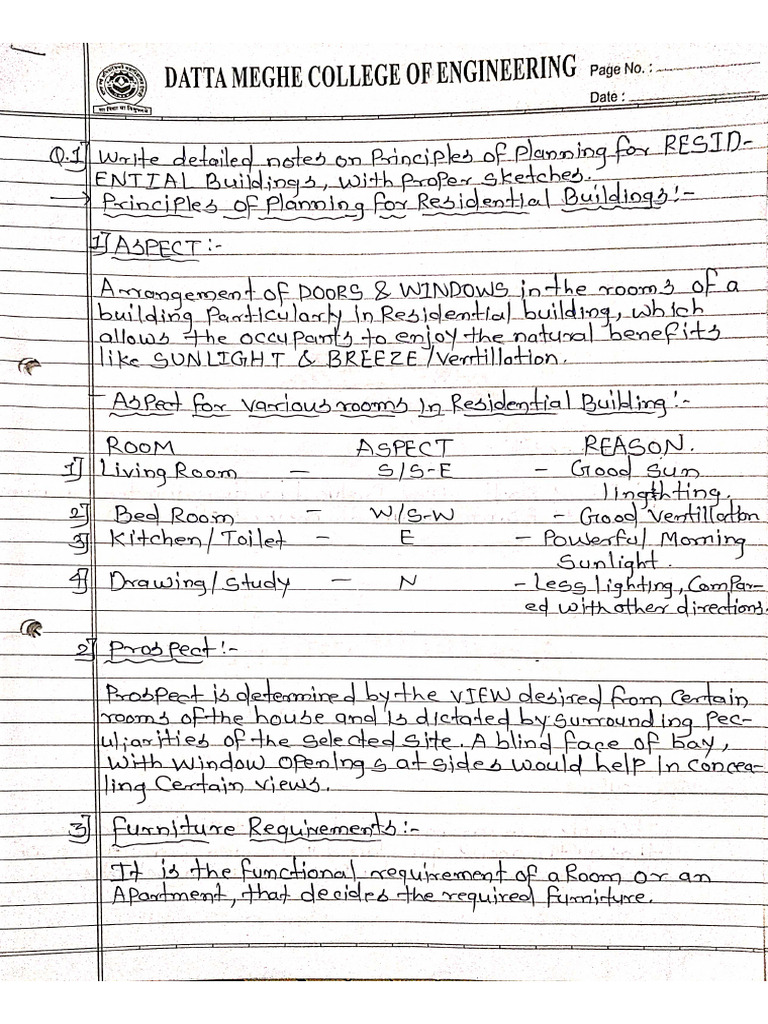 DATTA MEGHE COLLEGE OF ENGINEERING Page No. :
Date :
Q.1] Write detailed notes on Principles of Planning for RESID-
ENTIAL Buildings, with proper sketches.
→ Principles of Planning for Residential Buildings:-
1] ASPECT:-
Arrangement of DOORS & WINDOWS in the rooms of a
building Particularly in Residential building, which
allows the occupants to enjoy the natural benefits
like SUNLIGHT & BREEZE/Ventillation.
- Aspect for various rooms in Residential Building:-
ROOM ASPECT REASON.
1] Living Room - S/S-E - Good Sun
lingthting.
2] Bed Room - W/S-W - Good Ventillation
3] Kitchen/Toilet - E - Powerful Morning
Sunlight.
4] Drawing/Study - N - Less lighting, Compar-
ed with other directions.
2] Prospect:-
Prospect is determined by the VIEW desired from Certain
rooms of the house and is dictated by surrounding Pec-
uliarities of the selected site. A blind face of bay,
with window openings at sides would help in concea-
ling Certain views.
3] Furniture Requirements:-
It is the functional requirement of a Room or an
Apartment, that decides the required furniture.